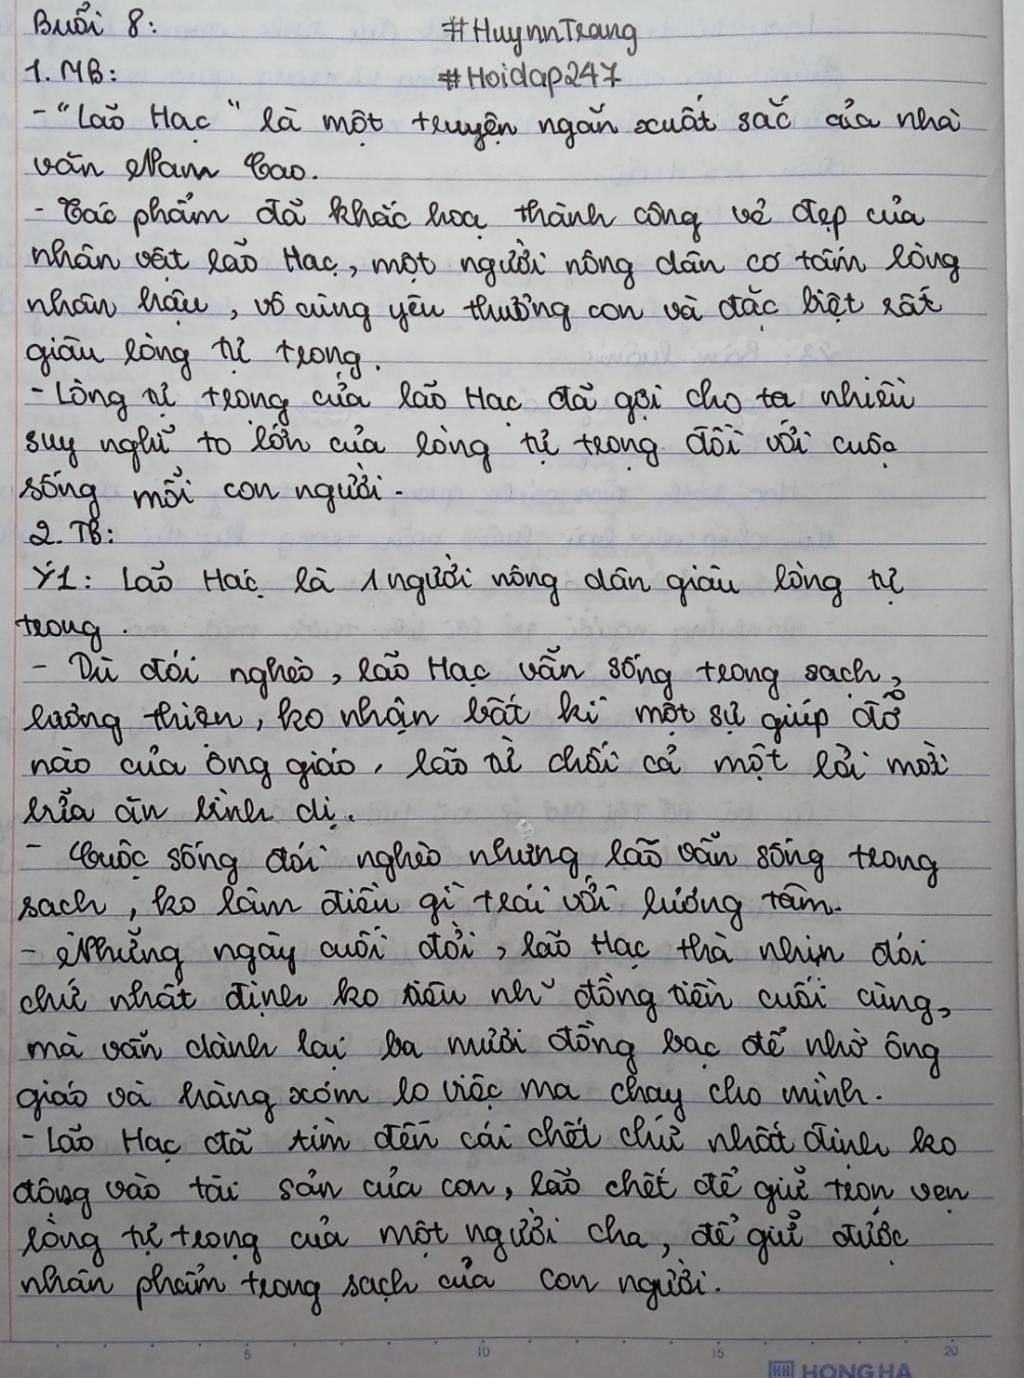 Buổi 8:
#HuynnTrang
1. MB:
#Hoidap247
- "Lão Hạc" là một truyện ngắn xuất sắc của nhà
văn Nam Cao.
- Tác phẩm đã khắc hoạ thành công vẻ đẹp của
nhân vật lão Hạc, một người nông dân có tấm lòng
nhân hậu, vô cùng yêu thương con và đặc biệt rất
giàu lòng tự trọng.
- Lòng tự trọng của lão Hạc đã gợi cho ta nhiều
suy nghĩ to lớn của lòng tự trọng đối với cuộc
sống mỗi con người.
2. TB:
Ý1: Lão Hạc là 1 người nông dân giàu lòng tự
trọng.
- Dù đói nghèo, lão Hạc vẫn sống trong sạch,
lương thiện, ko nhận bất kì một sự giúp đỡ
nào của ông giáo, lão từ chối cả một lời mời
bữa ăn bình dị.
- Cuộc sống đói nghèo nhưng lão vẫn sống trong
sạch, ko làm điều gì trái với lương tâm.
- Những ngày cuối đời, lão Hạc thà nhịn đói
chứ nhất định ko tiêu nh~ đồng tiền cuối cùng,
mà vẫn dành lại ba mươi đồng bạc để nhờ ông
giáo và hàng xóm lo việc ma chay cho mình.
- Lão Hạc đã tìm đến cái chết chứ nhất định ko
động vào tài sản của con, lão chết để giữ trọn vẹn
lòng tự trọng của một người cha, để giữ được
nhân phẩm trong sạch của con người.
5 10 15 20
HH HONG HA